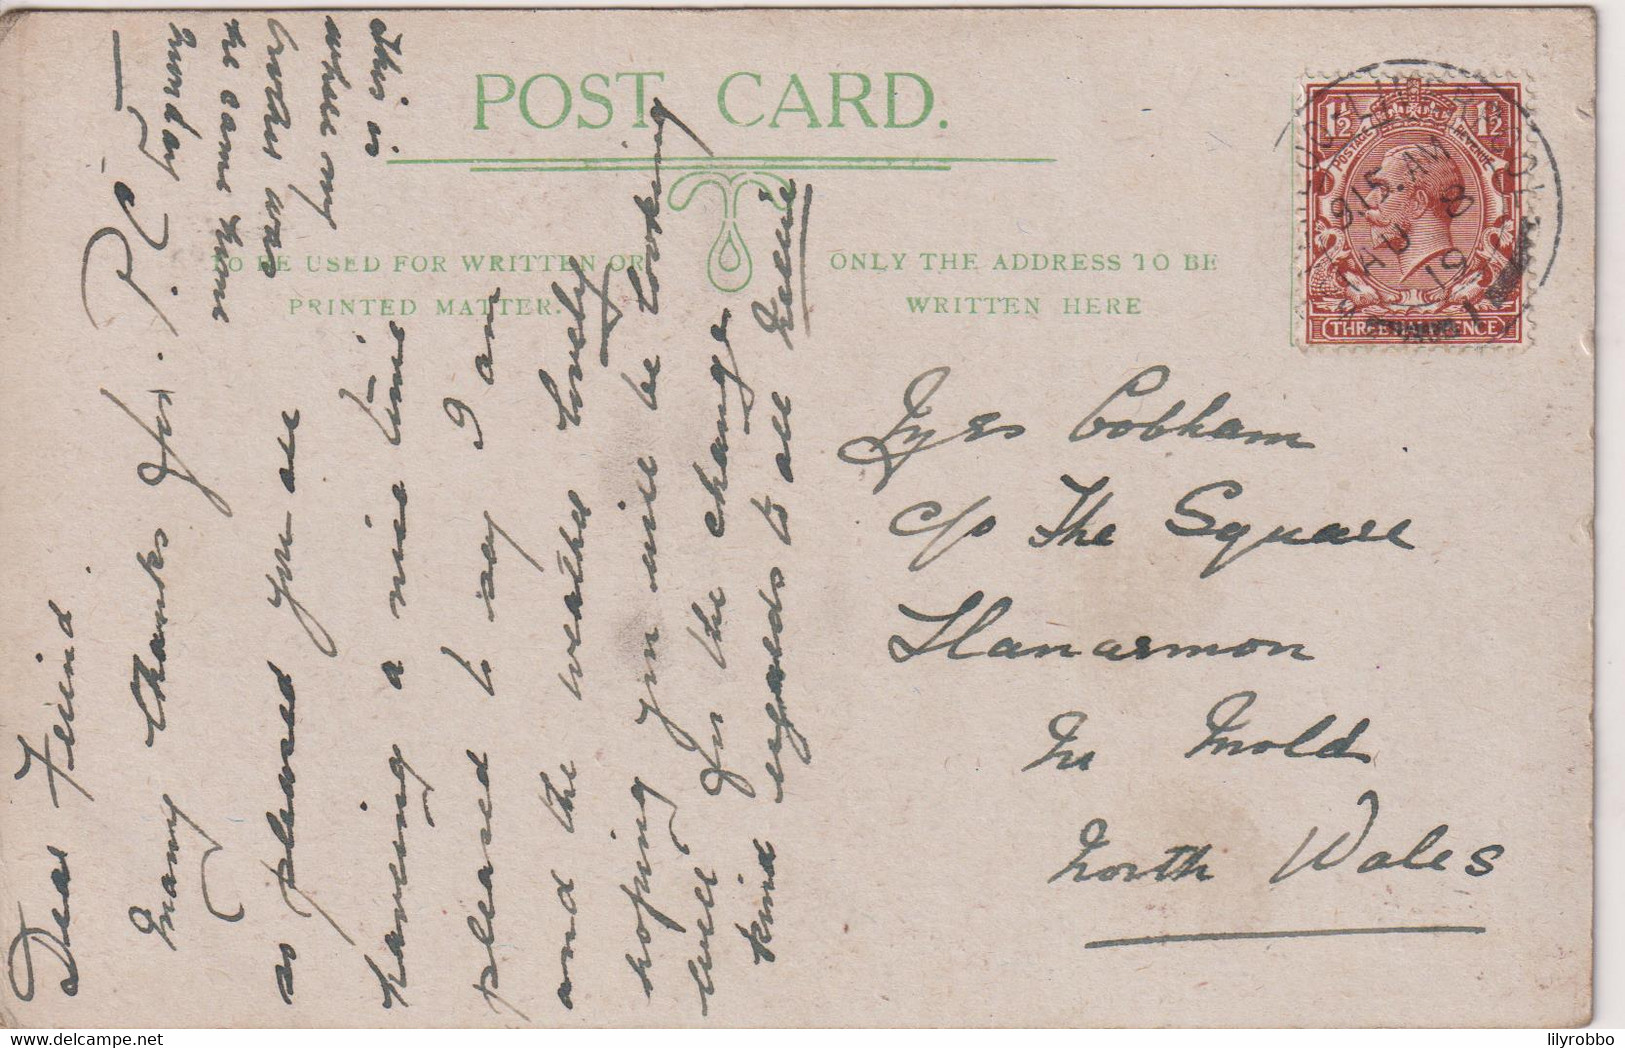 POST CARD.
TO BE USED FOR WRITTEN OR
PRINTED MATTER.
ONLY THE ADDRESS TO BE
WRITTEN HERE
1½ 1½
POSTAGE REVENUE
THREE HALFPENCE
9.15.AM
AU
19
Dear Friend
Many thanks for. P.C
so pleased you are
having a nice time
pleased to say I am
and the weather lovely
hoping you will be looking
well for the change
kind regards to all Nellie
this is
where my
was
he came home
Sunday
Cobham
c/o The Square
Llanarmon
Nr Mold
North Wales
lilyrobbo